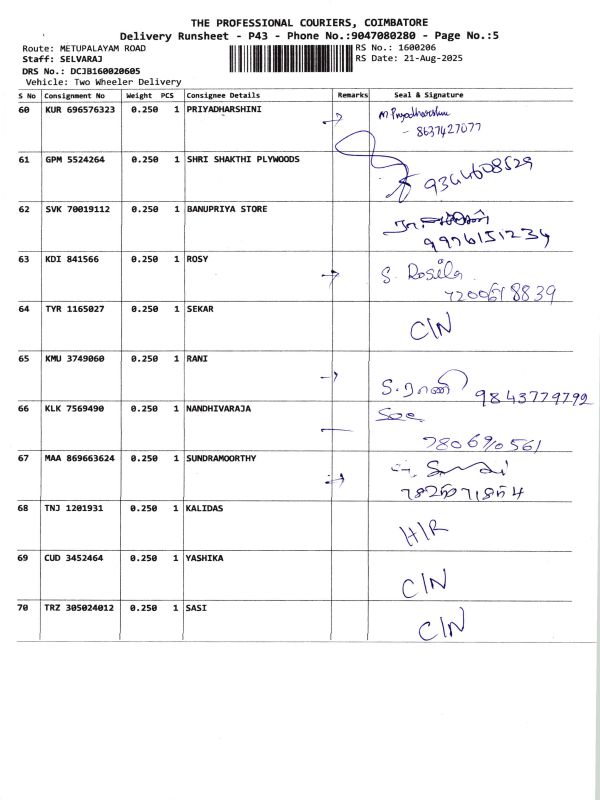 THE PROFESSIONAL COURIERS, COIMBATORE
Delivery Runsheet - P43 - Phone No.:9047080280 - Page No.:5
Route: METUPALAYAM ROAD RS No.: 1600206
Staff: SELVARAJ RS Date: 21-Aug-2025
DRS No.: DCJB160020605
Vehicle: Two Wheeler Delivery
S No Consignment No Weight PCS Consignee Details Remarks Seal & Signature
60 KUR 696576323 0.250 1 PRIYADHARSHINI M Priyadharshini
- 8637427077
61 GPM 5524264 0.250 1 SHRI SHAKTHI PLYWOODS 9344608529
62 SVK 70019112 0.250 1 BANUPRIYA STORE
9976151234
63 KDI 841566 0.250 1 ROSY S. Rosila
7200618839
64 TYR 1165027 0.250 1 SEKAR C/N
65 KMU 3749060 0.250 1 RANI S.ராணி 9843779792
66 KLK 7569490 0.250 1 NANDHIVARAJA
7806990561
67 MAA 869663624 0.250 1 SUNDRAMOORTHY
68 TNJ 1201931 0.250 1 KALIDAS H/R
69 CUD 3452464 0.250 1 YASHIKA C/N
70 TRZ 305024012 0.250 1 SASI C/N